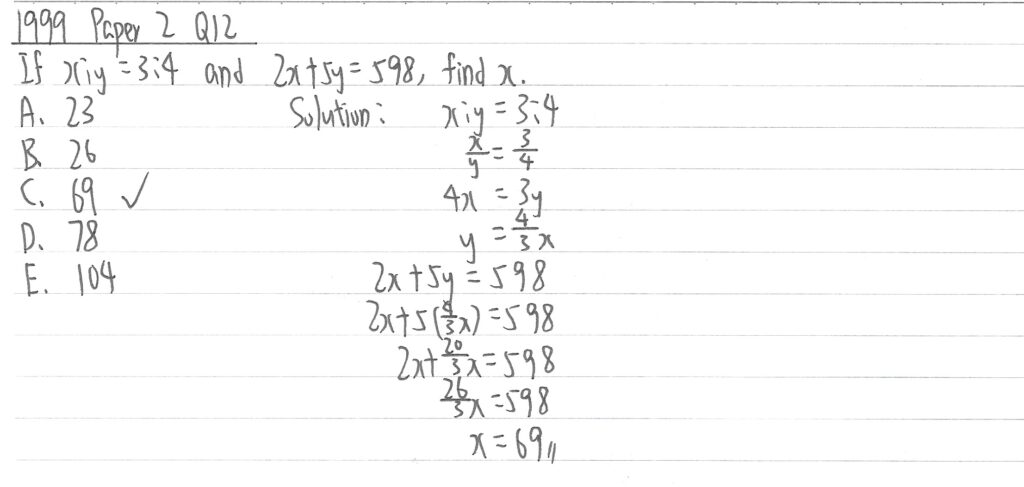 1999 Paper 2 Q12
If x:y = 3:4 and 2x+5y = 598, find x.
A. 23
B. 26
C. 69 ✓
D. 78
E. 104
Solution: x:y = 3:4
x/y = 3/4
4x = 3y
y = 4/3 x
2x + 5y = 598
2x+5(4/3 x) = 598
2x+20/3 x = 598
26/3 x = 598
x = 69〃